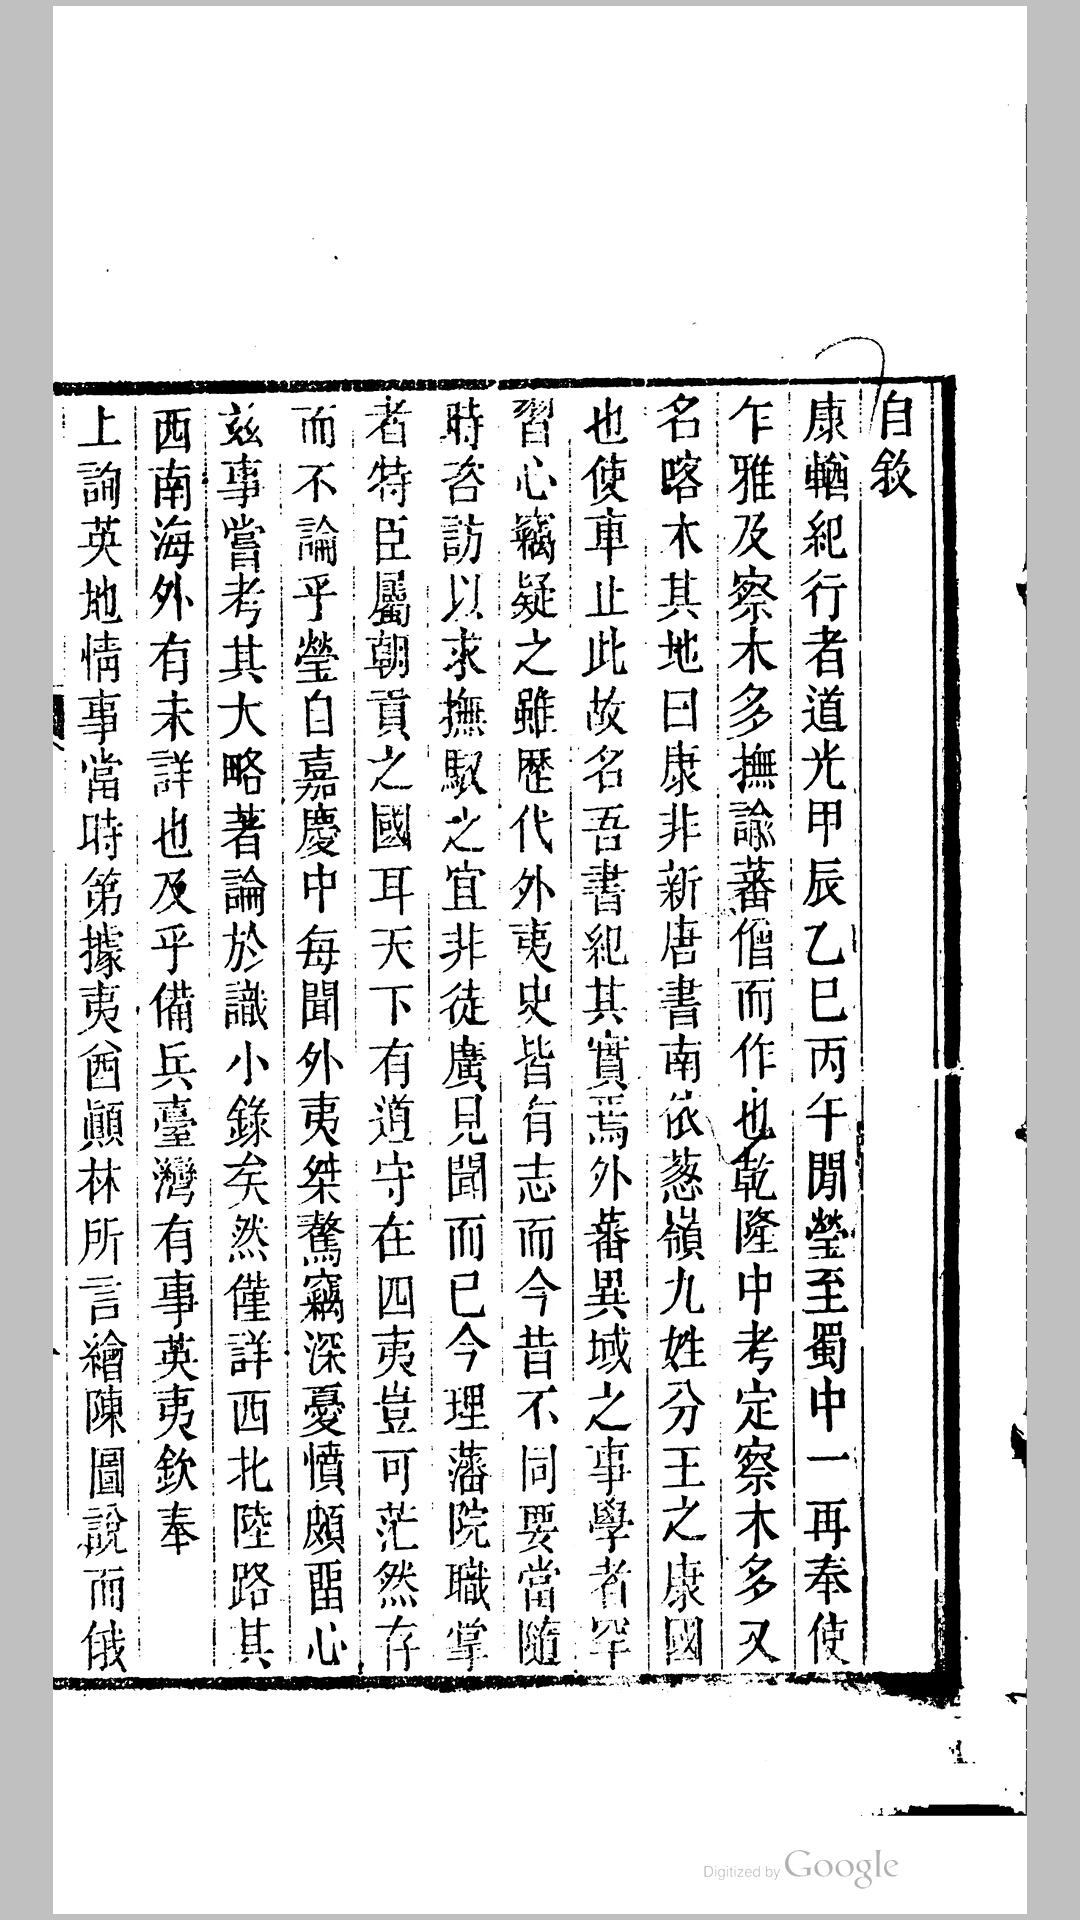 自敘
康輶紀行者道光甲辰乙巳丙午閒瑩至蜀中一再奉使
乍雅及察木多撫諭蕃僧而作也乾隆中考定察木多又
名喀木其地曰康非新唐書南依蔥嶺九姓分王之康國
也使車止此故名吾書紀其實焉外蕃異域之事學者罕
習心竊疑之雖歷代外夷史皆有志而今昔不同要當隨
時咨訪以求撫馭之宜非徒廣見聞而已今理藩院職掌
者特臣屬朝貢之國耳天下有道守在四夷豈可茫然存
而不論乎瑩自嘉慶中每聞外夷桀驁竊深憂憤頗畱心
茲事嘗考其大略著論於識小錄矣然僅詳西北陸路其
西南海外有未詳也及乎備兵臺灣有事英夷欽奉
上詢英地情事當時第據夷酋顚林所言繪陳圖說而俄
Digitized by Google